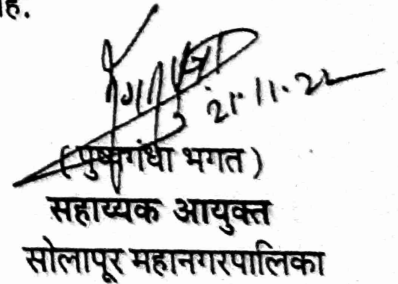 आहे.
21.11.22
(पुष्पगंधा भगत)
सहाय्यक आयुक्त
सोलापूर महानगरपालिका